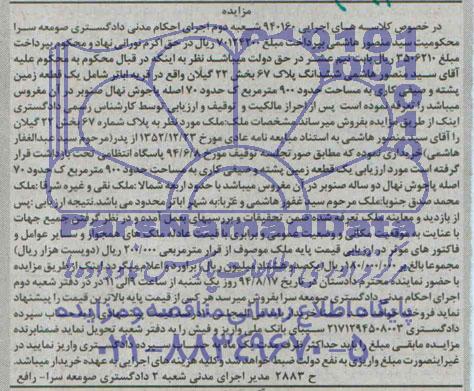 مزایده
در خصوص کلاسه های اجرایی ۹۴۰۱۶۰ شعبه دوم اجرای احکام مدنی دادگستری صومعه سرا
محکومیت سید منصور هاشمی بپرداخت مبلغ ۷۰۱۲۴۲۰۰ ریال در حق اکرم نورانی نهاد و محکوم بپرداخت
مبلغ ۳۵۰۶۲۱۰ ریال بابت نیم عشر در حق دولت میباشد نظر به اینکه در قبال محکوم به محکوم علیه
آقای سید منصور هاشمی ششدانگ پلاک ۶۷ بخش ۲۲ گیلان واقع در آبر اباتر شامل یک قطعه زمین
پشته و صیفی کاری به مساحت حدود ۹۰۰ مترمربع که حدود ۷۰ اصله پاجوش نهال صنوبر در آن مغروس
میباشد را تعرفه نموده است پس از احراز مالکیت و توقیف و ارزیابی توسط کارشناس رسمی دادگستری
اینک از طریق مزایده بفروش میرساند مشخصات ملک: ملک مورد نظر به پلاک شماره ۶۷ بخش ۲۲ گیلان
را آقای سید منصور هاشمی به استناد مبایعه نامه عادی مورخ ۱۳۵۲/۱۲/۲۳ از پدر (مرحوم سید عبدالغفار
هاشمی) خریداری نموده که مطابق صورتجلسه توقیف مورخ ۹۴/۶/۸ پاسگاه انتظامی تحت بازداشت قرار
گرفته است مورد ارزیابی یک قطعه زمین پشته و صیفی کاری به مساحت حدود ۹۰۰ مترمربع که حدود ۷۰
اصله پاجوش نهال دو ساله صنوبر در آن مغروس میباشد با حدود اربعه شمالا: ملک نقی و غیره شرقا: ملک
محمد صدیق جنوبا: ملک مرحوم سید غفور هاشمی و غربا: به شهر اباتر محدود می باشد. نتیجه ارزیابی: پس
از بازدید و معاینه ملک تعرفه شده ضمن تحقیقات و بررسیهای بعمل آمده و در نظر گرفتن جمیع جهات
با عنایت به موقعیت مکانی و وضعیت بهره برداری با قیمت عادله ملک های همجوار و سایر عوامل و
فاکتور های موثر در ارزیابی قیمت پایه ملک موصوف از قرار مترمربعی ۲۰۰/۰۰۰ ریال (دویست هزار ریال)
مجموعا بالغ بر ۱۸۰/۰۰۰/۰۰۰ ریال (یکصد و هشتاد میلیون ریال) برآورد و اعلام میگردد اینک از طریق مزایده
با حضور نماینده محترم دادستان در تاریخ ۹۴/۸/۱۷ روز یک شنبه از ساعت ۹ الی ۱۱ در در دفتر شعبه دوم
اجرای احکام مدنی دادگستری صومعه سرا بفروش میرسد هر کس از قیمت پایه بالاترین قیمت را پیشنهاد
دادگستری ۲۱۷۱۲۹۴۵۰۸۰۰۳ سیبای بانک ملی واریز و فیش را به دفتر شعبه تحویل نماید ضمنا برنده
غیر اینصورت مبلغ واریزی به نفع دولت ضبط خواهد شد و کلیه هزینه های اجرایی به عهده خریدار میباشد.
ح ۲۸۸۳ مدیر اجرای مدنی شعبه ۲ دادگستری صومعه سرا - رافع
پایگاه اطلاع رسانی مناقصه و مزایده
۰۲۱-۸۸۳۴۹۶۷۰-۵